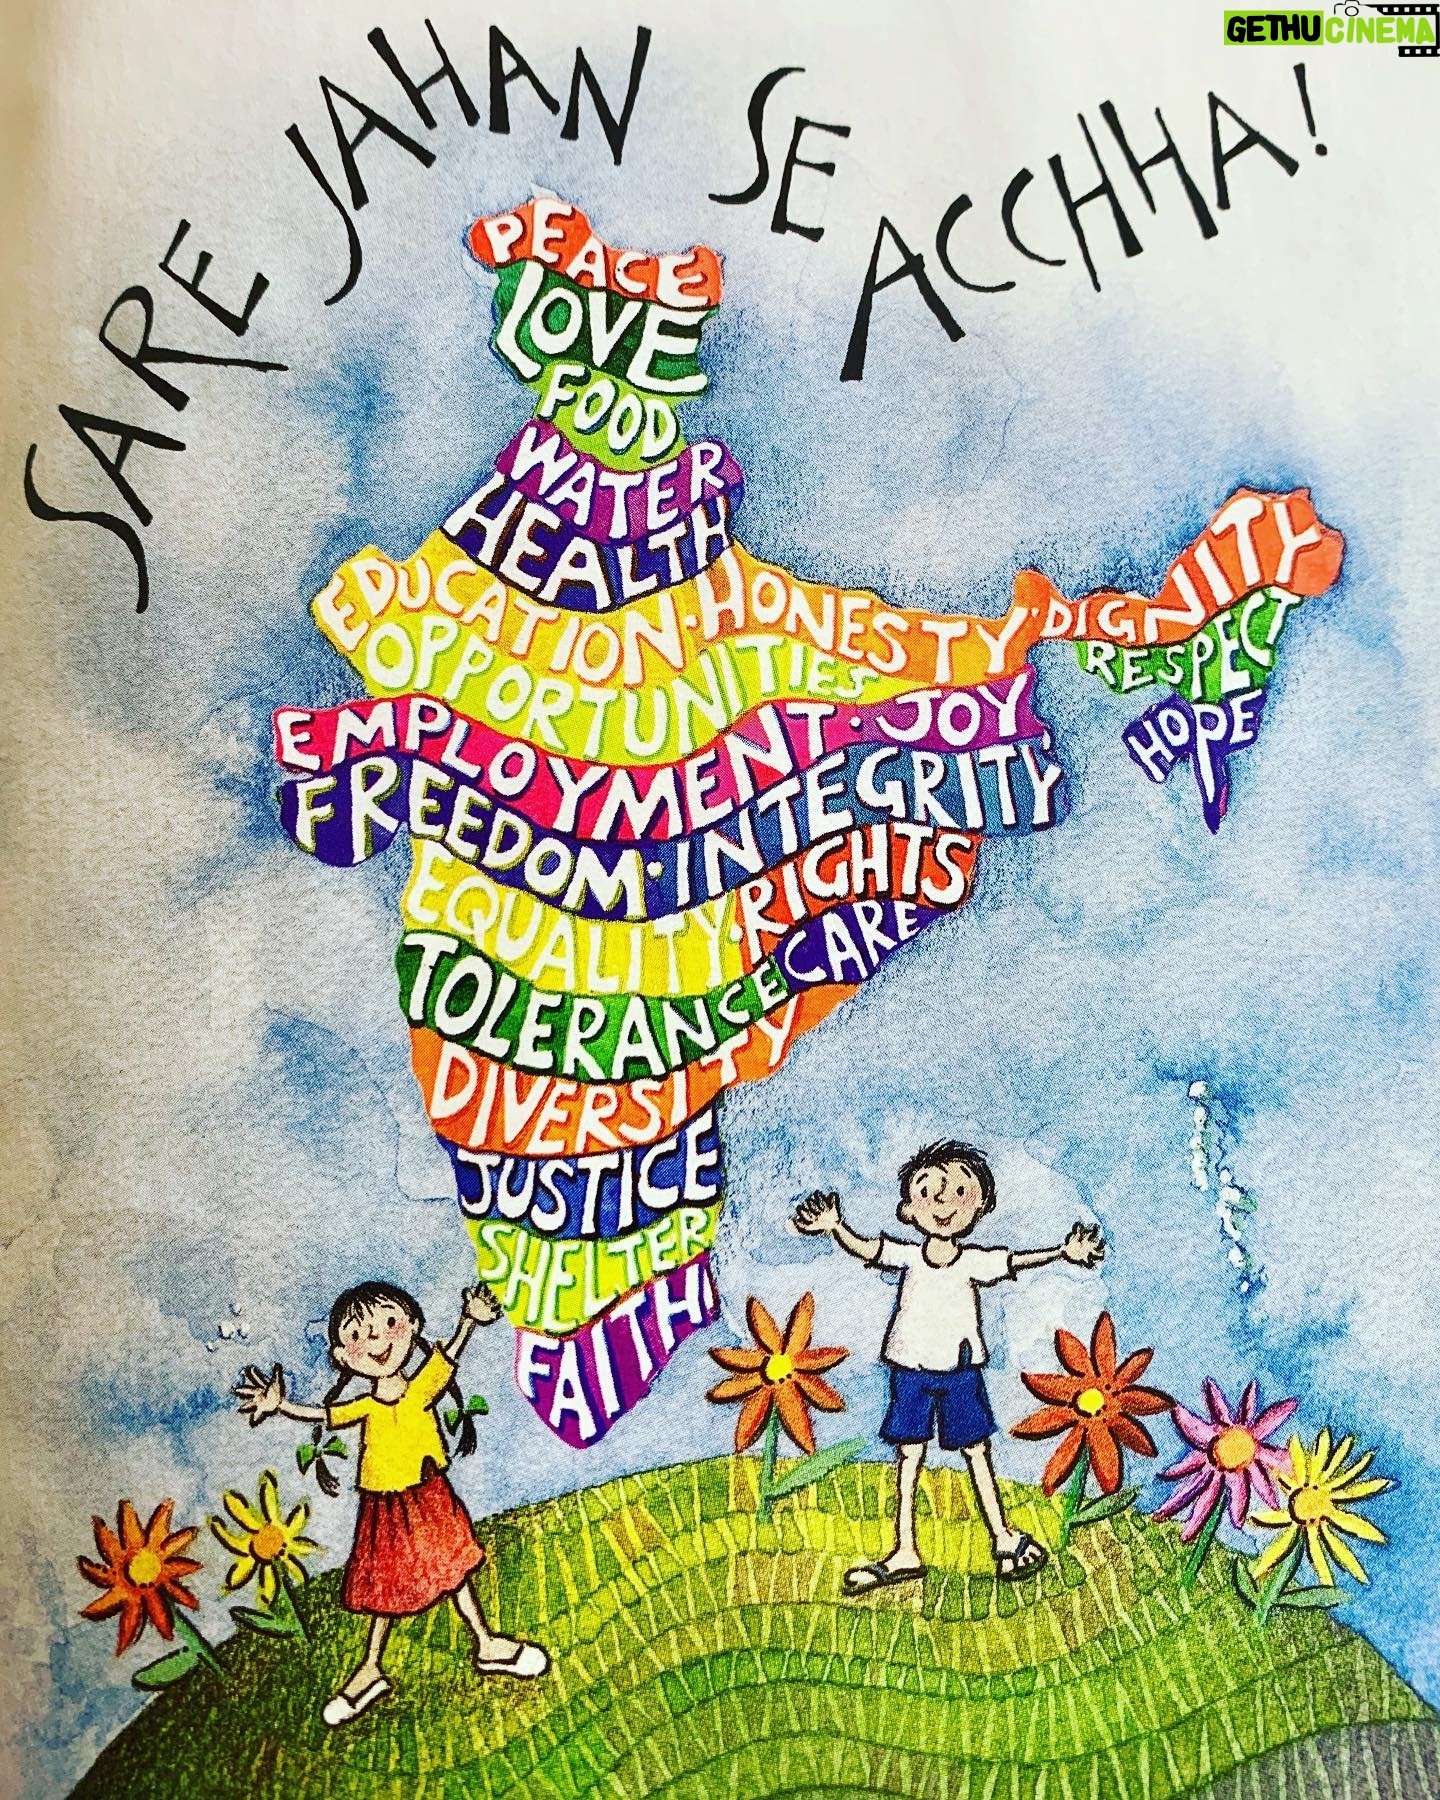 GETHU CINEMA
SARE JAHAN SE ACCHHA!
PEACE
LOVE
FOOD
WATER
HEALTH
EDUCATION · HONESTY · DIGNITY
OPPORTUNITIES
RESPECT
EMPLOYMENT · JOY
HOPE
FREEDOM · INTEGRITY
EQUALITY · RIGHTS
TOLERANCE CARE
DIVERSITY
JUSTICE
SHELTER
FAITH